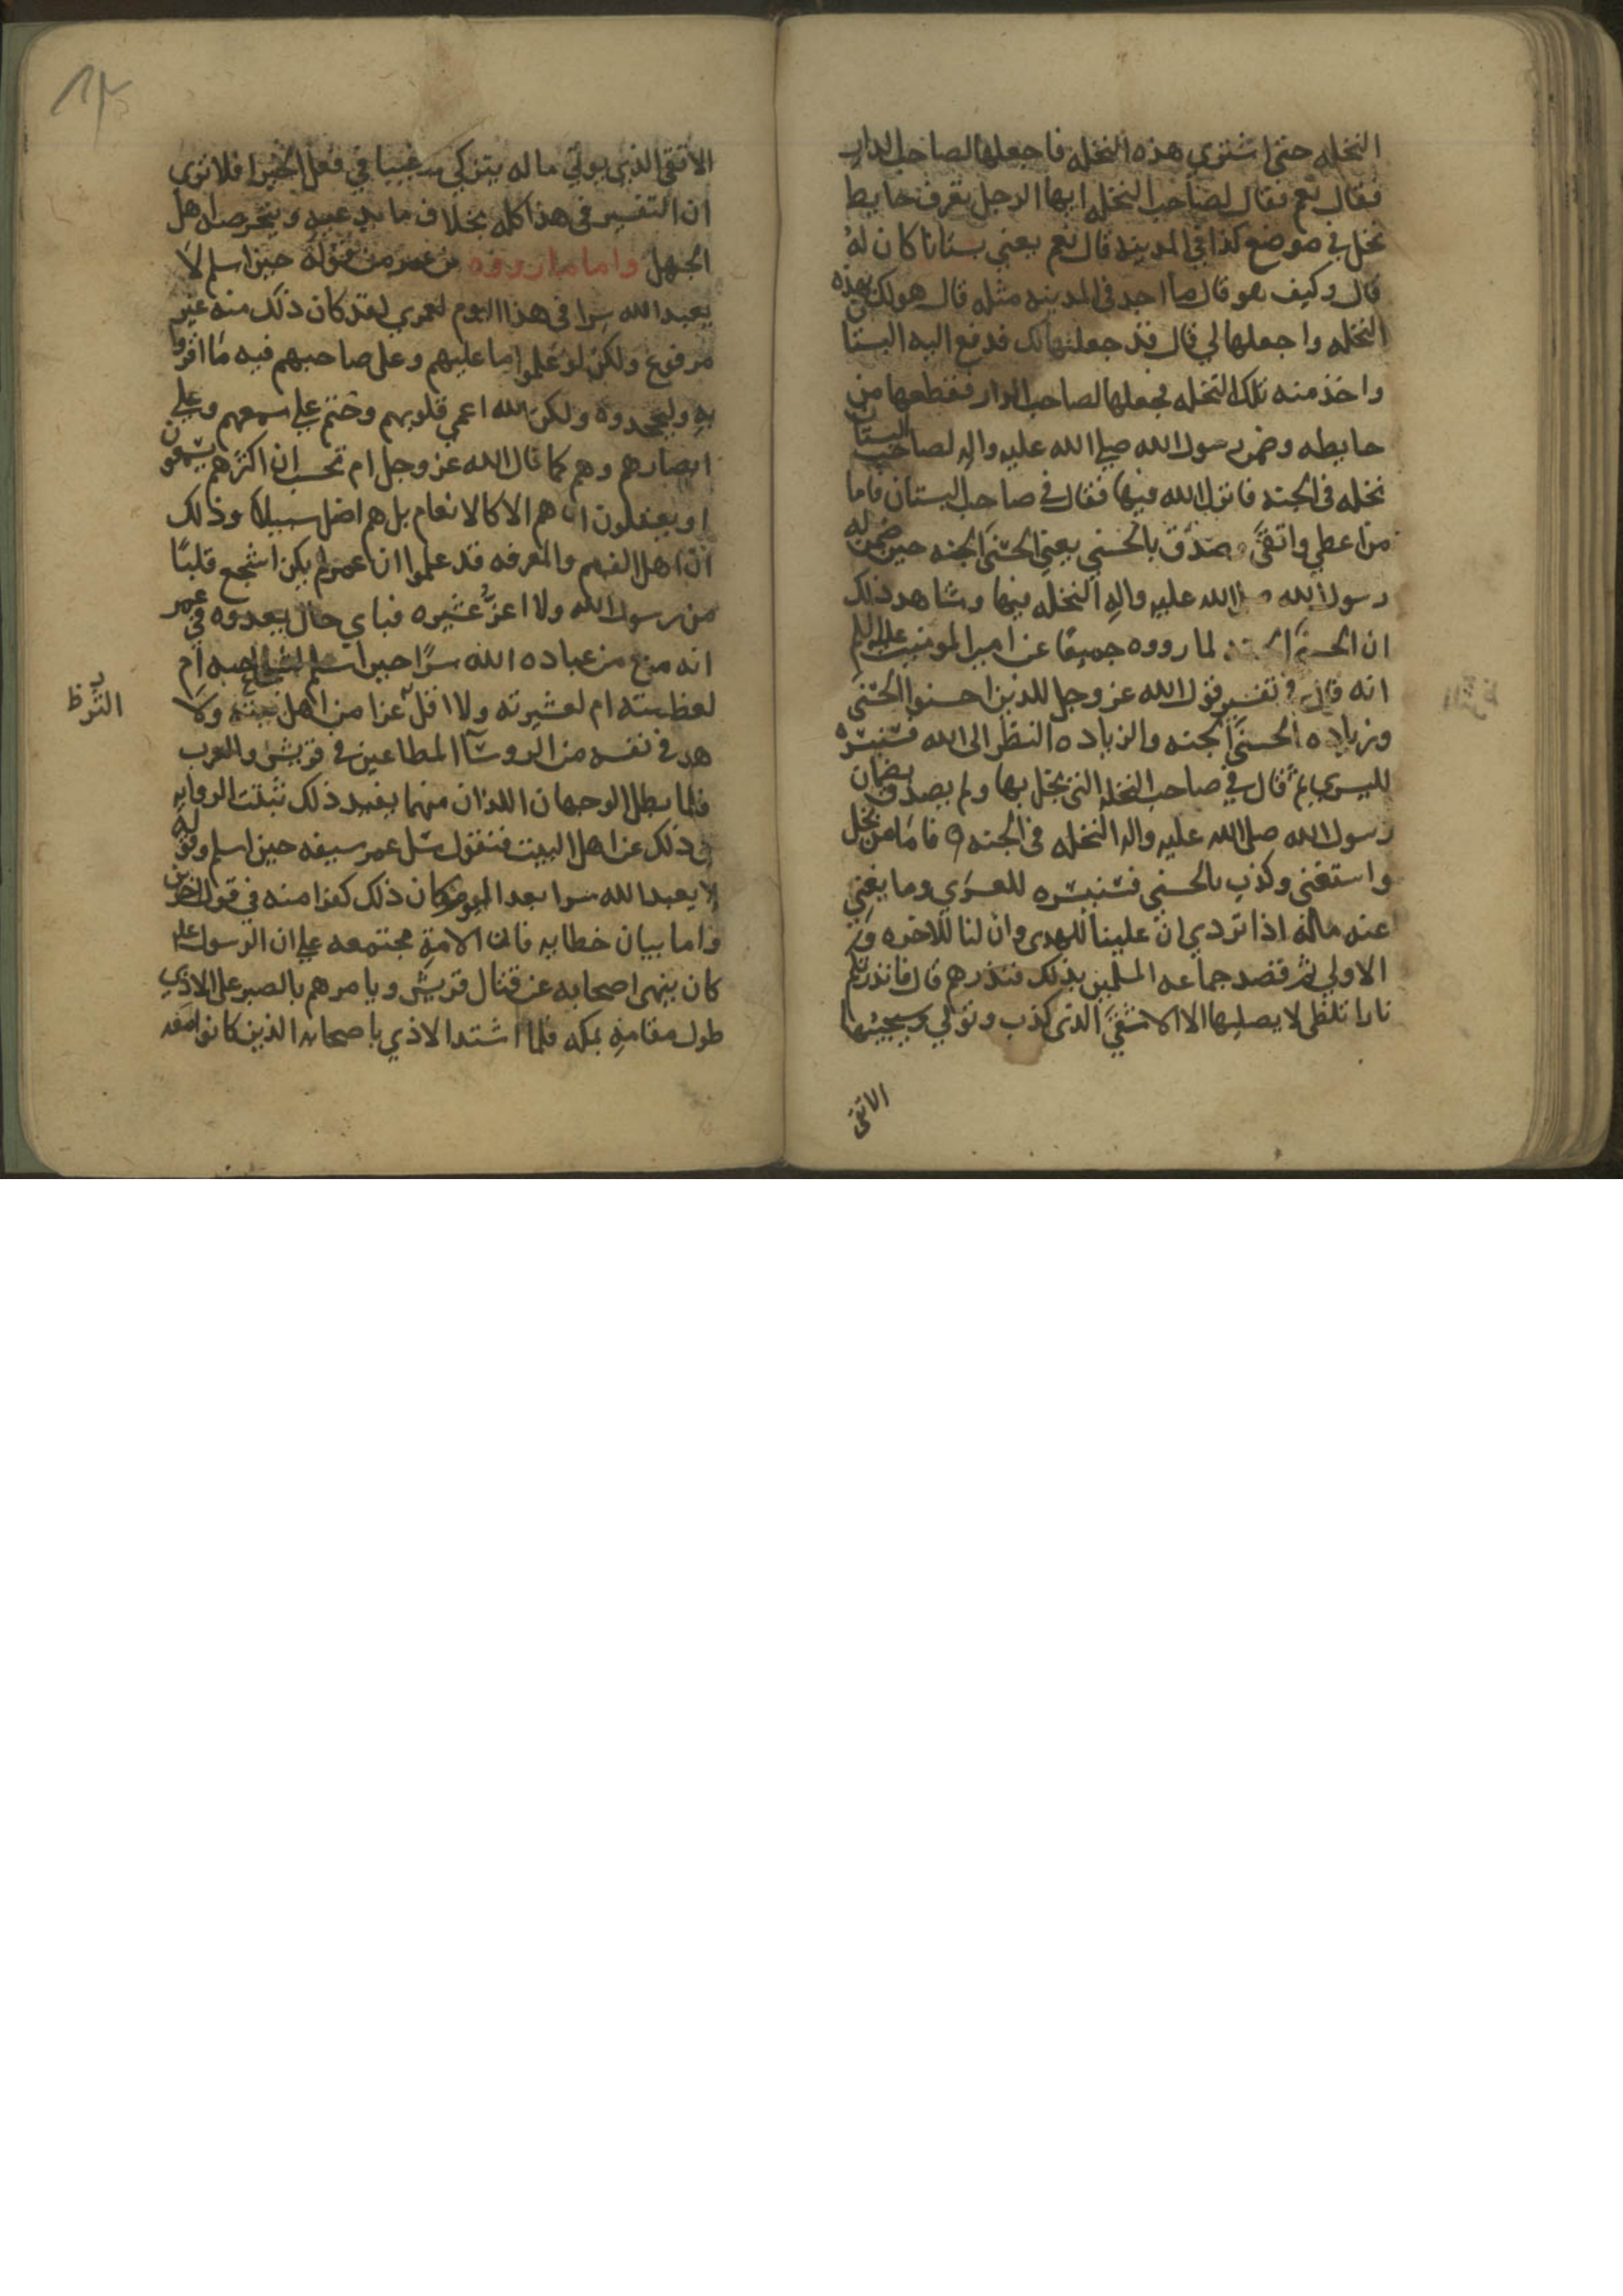 النخله حتى اشتري هذه النخله فاجعلها لصاحب الدار
فقال نعم فقال لصاحب النخله ايها الرجل تعرف حايط
نخل في موضع كذا في المدينه قال نعم يعني بستانا كان له
قال وكيف هو قال ما احد في المدينه مثله قال هو لك بهذه
النخله واجعلها لي قال قد جعلتها لك فدفع اليه البستان
واخذ منه تلك النخله فجعلها لصاحب الدار فقطعها من
حايطه وضمن رسول الله صلى الله عليه واله لصاحب البستان
نخله في الجنه فانزل الله فيهما فقال في صاحب البستان فاما
من اعطي واتقى وصدق بالحسني يعني الحسنى الجنه حين ضمن له
رسول الله صلى الله عليه واله النخله فيها وشاهد ذلك
ان الحسنى الجنه لما رووه جميعا عن امير المومنين عليه السلم
انه قال في تفسير قول الله عز وجل للذين احسنوا الحسنى
وزياده الحسنى الجنه والزياده النظر الى الله فسنيسره
لليسري ثم قال في صاحب النخله التي بخل بها ولم يصدق بضمان
رسول الله صلى الله عليه واله النخله في الجنه واما من بخل
واستغنى وكذب بالحسنى فسنيسره للعسري وما يغني
عنه ماله اذا تردي ان علينا للهدى وان لنا للاخره و
الاولي ثم قصد جماعه المسلمين بذلك فنذرهم قال فانذرتكم
نارا تلظى لا يصليها الا الاشقى الذي كذب وتولي وسيجنبها
الاتقى
الاتقى الذي يوتي ماله يتزكى ترغيبا في فعل الخير افلا ترى
ان التفسير في هذا كله بخلاف ما يدعيه ويتخرصه اهل
الجهل واما ما رووه من عمر من قوله حين اسلم لا
يعبد الله سرا في هذا اليوم لعمري لقد كان ذلك منه غير
مرفوع ولكن لو علموا ما عليهم وعلى صاحبهم فيه ما اقروا
به ولجحدوه ولكن الله اعمي قلوبهم وختم علي سمعهم وعلي
ابصارهم وهم كما قال الله عز وجل ام تحسب ان اكثرهم يسمعون
او يعقلون ان هم الا كالانعام بل هم اضل سبيلا وذلك
ان اهل الفهم والمعرفه قد علموا ان عمر لم يكن اشجع قلبًا
من رسول الله ولا اعزّ عشيره فباي حال يعدوه في عمر
انه منع من عباده الله سرًا حين اسلم ام
لعظمته ام لعشيرته ولا اقل عزا من اهل بيته ولا
هو في نفسه من الروسآ المطاعين في قريش والعرب
فلما بطل الوجهان اللذان منهما يفيد ذلك ثبتت الروايه
في ذلك عن اهل البيت فنقول سل عمر سيفه حين اسلم وقوله
لا يعبد الله سرا بعد اليوم كان ذلك كفرا منه في قول
واما بيان خطابه فان الامة مجتمعه علي ان الرسول عليه
كان ينهى اصحابه عن قتال قريش ويامرهم بالصبر على الاذي
طول مقامه بمكه فلما اشتد الاذي باصحابه الذين كانوا معه